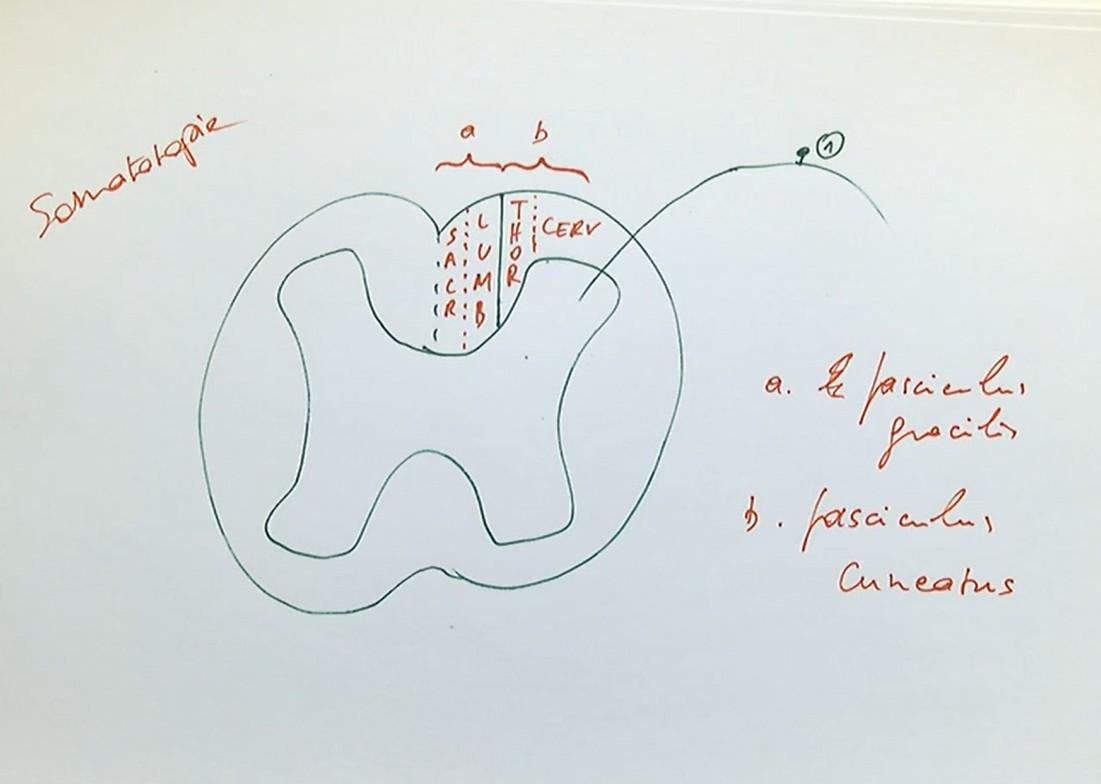 Somatotopie
a b
1
SACR
LUMB
THOR
CERV
a. fasciculus
gracilis
b. fasciculus
Cuneatus